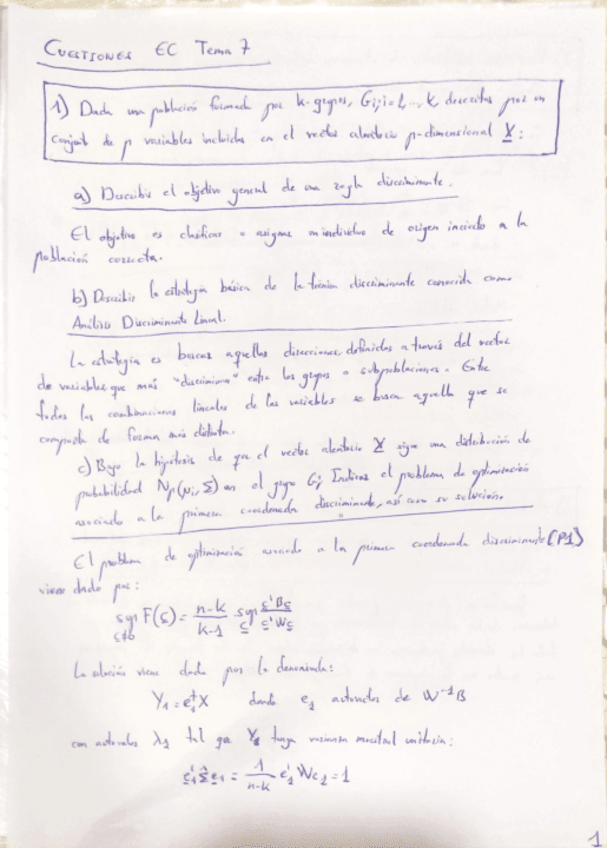 CUESTIONES EC Tema 7
1) Dada una población formada por k-grupos, Gi, i=1,...,k descritas por un
conjunto de p variables incluidas en el vector aleatorio p-dimensional X:
a) Describir el objetivo general de una regla discriminante.
El objetivo es clasificar o asignar un individuo de origen incierto a la
población correcta.
b) Describir la estrategia básica de la técnica discriminante conocida como
Análisis Discriminante Lineal.
La estrategia es buscar aquellas direcciones, definidas a través del vector
de variables, que más "discriminan" entre los grupos o subpoblaciones. Entre
todas las combinaciones lineales de las variables se busca aquella que se
comporta de forma más distinta.
c) Bajo la hipótesis de que el vector aleatorio X sigue una distribución de
probabilidad Np(μi, Σ) en el grupo Gi. Indicar el problema de optimización
asociado a la primera coordenada discriminante, así como su solución.
El problema de optimización asociado a la primera coordenada discriminante (P1)
viene dado por:
sup F(c) = n-k/k-1 sup c'Bc/c'Wc
c≠0 c
La solución viene dada por la denominada:
Y1 = e1'X donde e1 autovector de W⁻¹B
con autovalor λ1 tal que Y1 tenga varianza muestral unitaria:
e1'Σ̂e1 = 1/n-k e1'We1 = 1
1